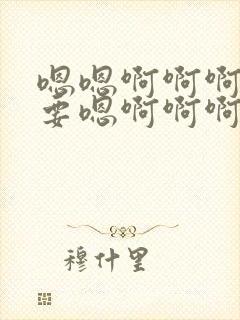 嗯嗯啊啊啊
要嗯啊啊啊
穆什里